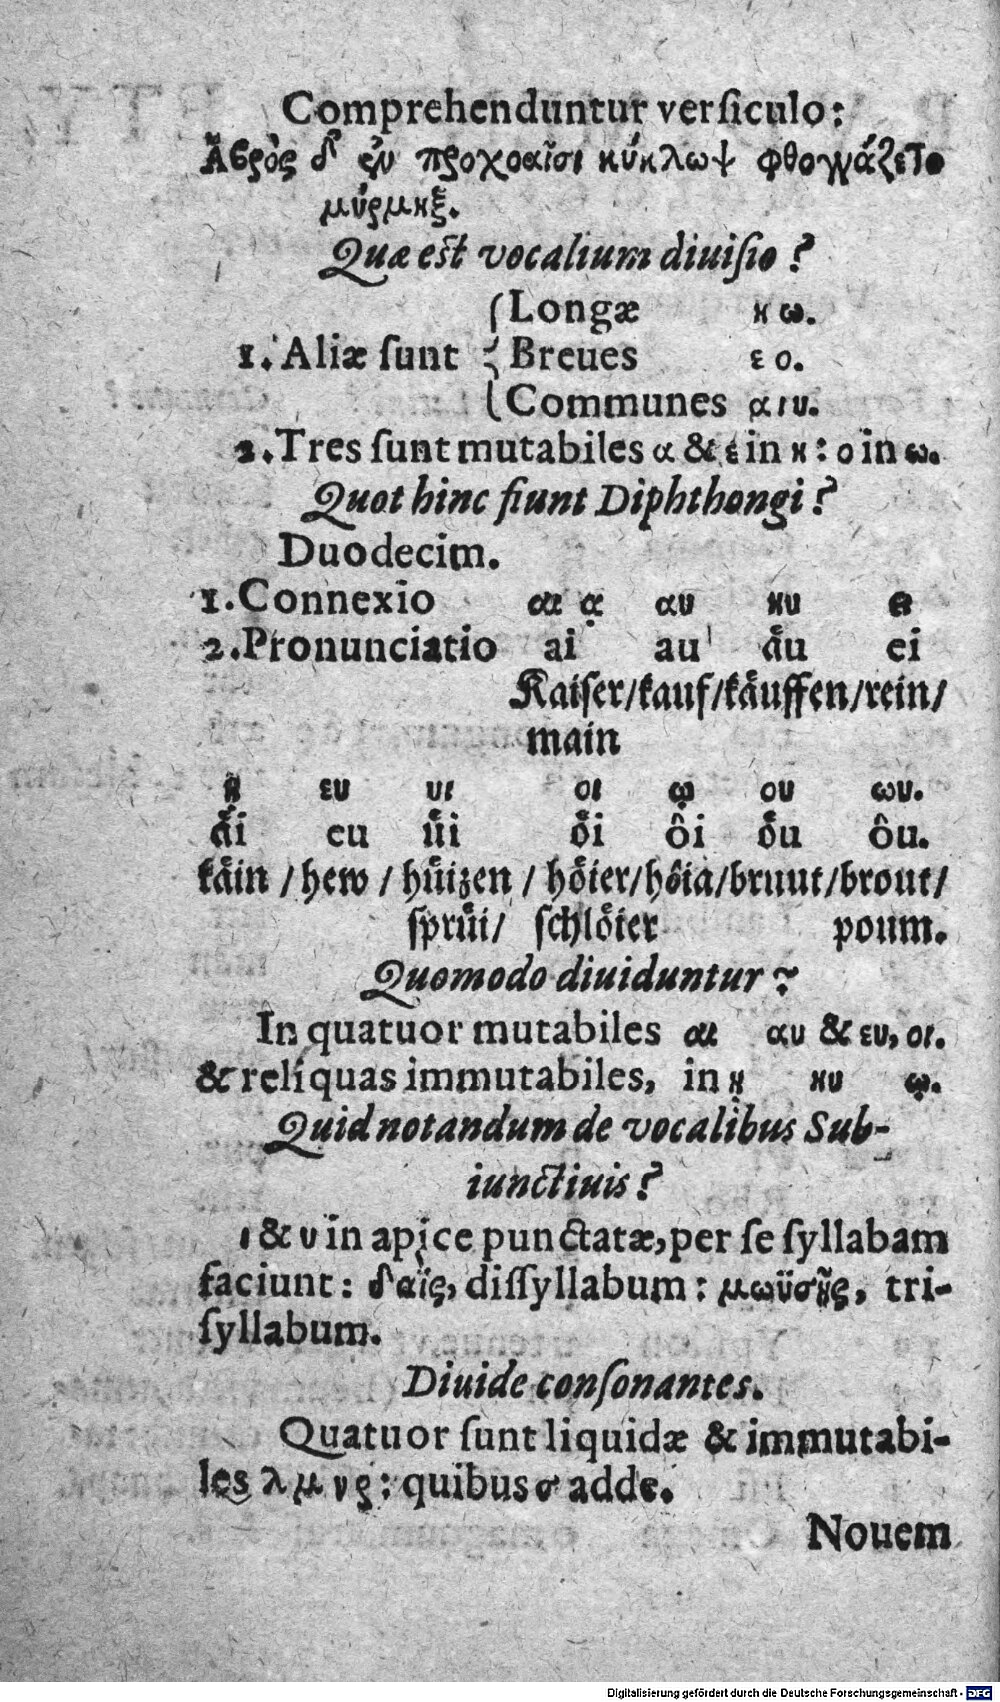 Comprehenduntur verſiculo:
Ἁβρὸς δ' ἐν προχοαῖσι κύκλωψ φθογγάζετο
μύρμηξ.
Quæ est vocalium diuiſio?
Longæ η ω.
1. Aliæ ſunt Breues ε ο.
Communes α ι υ.
2. Tres ſunt mutabiles α & ε in η: ο in ω.
Quot hinc fiunt Diphthongi?
Duodecim.
1. Connexio αι ᾳ αυ ηυ ει
2. Pronunciatio ai au aͤu ei
Kaiſer/kauf/kaͤuffen/rein/
main
ῃ ευ υι οι ῳ ου ωυ.
aͤi eu uͤi oͤi ôi oͤu ôu.
kaͤin / hew / huͤizen / hoͤier/hôia/bruut/brout/
ſpruͤi/ ſchloͤier poum.
Quomodo diuiduntur?
In quatuor mutabiles αι αυ & ευ, οι.
& reliquas immutabiles, in ῃ ηυ ῳ.
Quid notandum de vocalibus Sub-
iunctiuis?
ι & υ in apice punctatæ, per ſe ſyllabam
faciunt: δαϊς, diſſyllabum: μωϋσῆς, tri-
ſyllabum.
Diuide conſonantes.
Quatuor ſunt liquidæ & immutabi-
les λ μ ν ρ: quibus σ adde.
Nouem
Digitalisierung gefördert durch die Deutsche Forschungsgemeinschaft - DFG